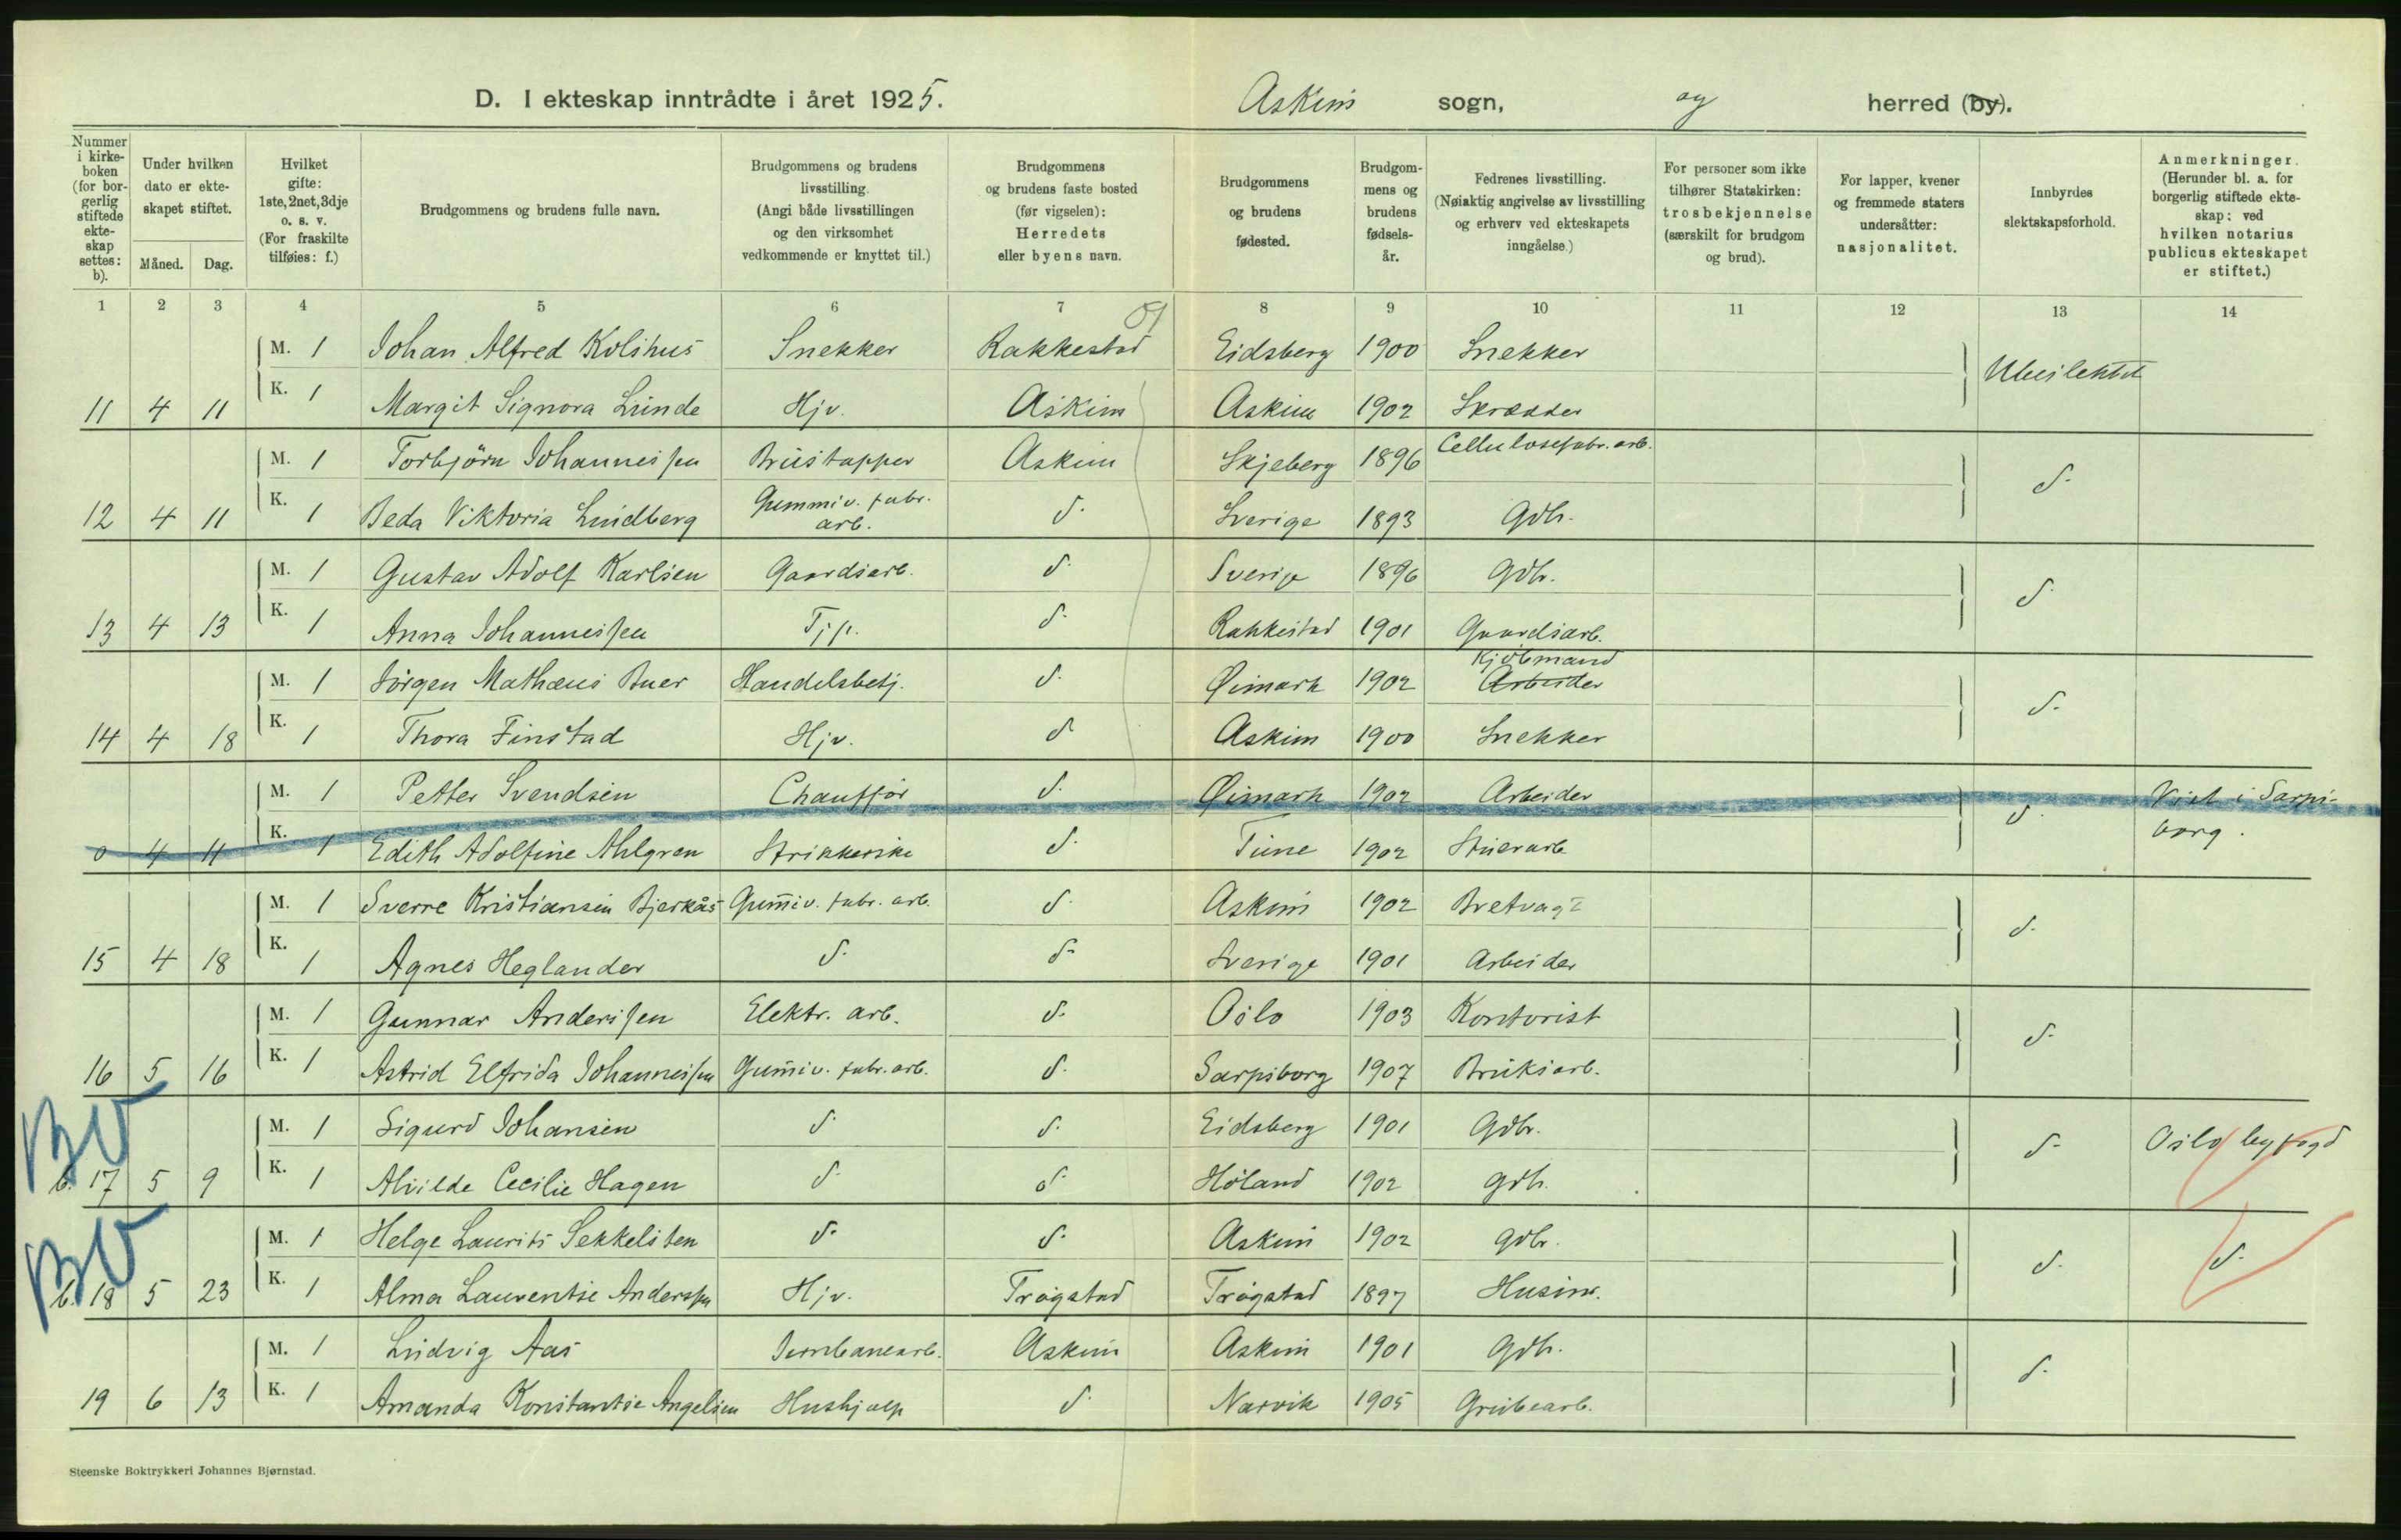 D. I ekteskap inntrådte i året 1925. Askim sogn, og herred (by).
Nummer i kirkeboken (for borgerlig stiftede ekteskap settes: b).
Under hvilken dato er ekteskapet stiftet.
Måned. Dag.
Hvilket gifte: 1ste, 2net, 3dje o. s. v. (For fraskilte tilføies: f.)
Brudgommens og brudens fulle navn.
Brudgommens og brudens livsstilling. (Angi både livsstillingen og den virksomhet vedkommende er knyttet til.)
Brudgommens og brudens faste bosted (før vigselen): Herredets eller byens navn.
Brudgommens og brudens fødested.
Brudgommens og brudens fødselsår.
Fedrenes livsstilling. (Nøiaktig angivelse av livsstilling og erhverv ved ekteskapets inngåelse.)
For personer som ikke tilhører Statskirken: trosbekjennelse (særskilt for brudgom og brud).
For lapper, kvener og fremmede staters undersåtter: nasjonalitet.
Innbyrdes slektskapsforhold.
Anmerkninger. (Herunder bl. a. for borgerlig stiftede ekteskap: ved hvilken notarius publicus ekteskapet er stiftet.)
1 2 3 4 5 6 7 8 9 10 11 12 13 14
M. 1 Johan Alfred Kolshus Snekker Rakkestad Eidsberg 1900 Snekker Ubeslektet
11 4 11 K. 1 Margit Signora Lunde Hjv. Askim Askim 1902 Skrædder
M. 1 Torbjörn Johannessen Brustapper Askim Skjeberg 1896 Cellulosefabr. arb. d.
12 4 11 K. 1 Beda Viktoria Lundberg Gummiv. fabr. arb. d. Sverige 1893 Gdb.
M. 1 Gustav Adolf Karlsen Gaardsarb. d. Sverige 1896 Gdbr. d.
13 4 13 K. 1 Anna Johannessen Tjp. d. Rakkestad 1901 Gaardsarb.
M. 1 Jörgen Mathæus Buer Handelsbetj. d. Øimark 1902 Kjöbmand Arbeider d.
14 4 18 K. 1 Thora Finstad Hjv. d. Askim 1900 Snekker
M. 1 Petter Svendsen Chauffør d. Øimark 1902 Arbeider d. Viet i Sarpsborg.
0 4 11 K. 1 Edith Adolfine Ahlgren Strikkerske d. Tune 1902 Stuerarb
M. 1 Sverre Kristiansen Bjerkås Gummiv. fabr. arb. d. Askim 1902 d.
15 4 18 K. 1 Agnes Heglander d. d. Sverige 1901 Arbeider
M. 1 Gunnar Anderssen Elektr. arb. d. Oslo 1903 Kontorist d.
16 5 16 K. 1 Astrid Elfrida Johannessen Gummiv. fabr. arb. d. Sarpsborg 1907 Bruksarb.
BV
M. 1 Sigurd Johansen d. d. Eidsberg 1901 Gdbr. d. Oslo byfogd
b. 17 5 9 K. 1 Alvilde Cecilie Hagen d. d. Höland 1902 Gdb.
BV
M. 1 Helge Laurits Sekkelsten d. d. Askim 1902 Gdbr. d. d.
b. 18 5 23 K. 1 Alma Laurentse Anderssen Hjv. Trögstad Trögstad 1897 Husm.
M. 1 Ludvig Aas Jernbanearb. Askim Askim 1901 Gdb. d.
19 6 13 K. 1 Amanda Konstantse Angelsen Hushjælp d. Narvik 1905 Grubearb.
Steenske Boktrykkeri Johannes Bjørnstad.